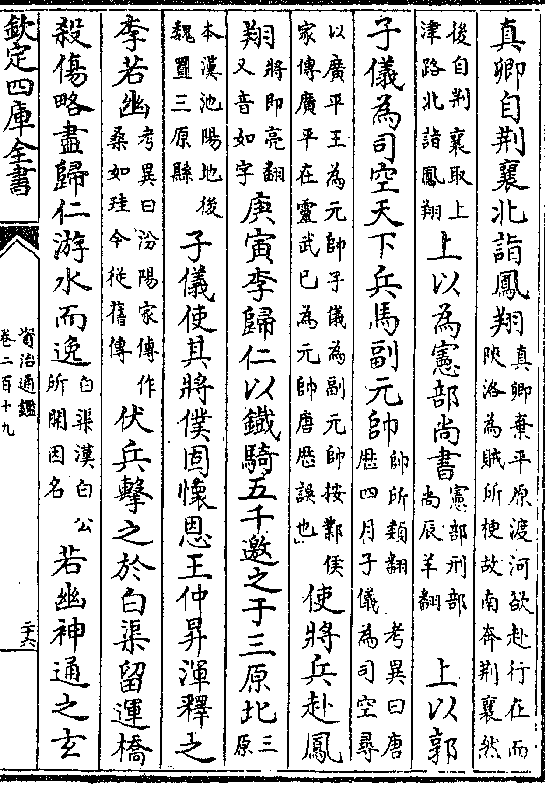 真卿自荆襄北詣鳳翔真卿棄平原渡河欲赴行在而陜洛為賊所梗故南奔荆襄然
後自荆襄取上津路北詣鳳翔上以為憲部尚書憲部刑部尚辰羊翻上以郭
子儀為司空天下兵馬副元帥帥所類翻考異曰唐厯四月子儀為司空尋
以廣平王為元帥子儀為副元帥按鄴侯家傳廣平在靈武已為元帥唐厯誤也使將兵赴鳳
翔將即亮翻又音如字庚寅李歸仁以鐵騎五千邀之于三原北三原
本漢池陽地後魏置三原縣子儀使其將僕固懷恩王仲昇渾釋之
李若幽考異曰汾陽家傳作桑如珪今從舊傳伏兵擊之於白渠留運橋
殺傷略盡歸仁游水而逸白渠漢白公所開因名若幽神通之玄
欽定四庫全書
資治通鑑
卷二百十九
二十六